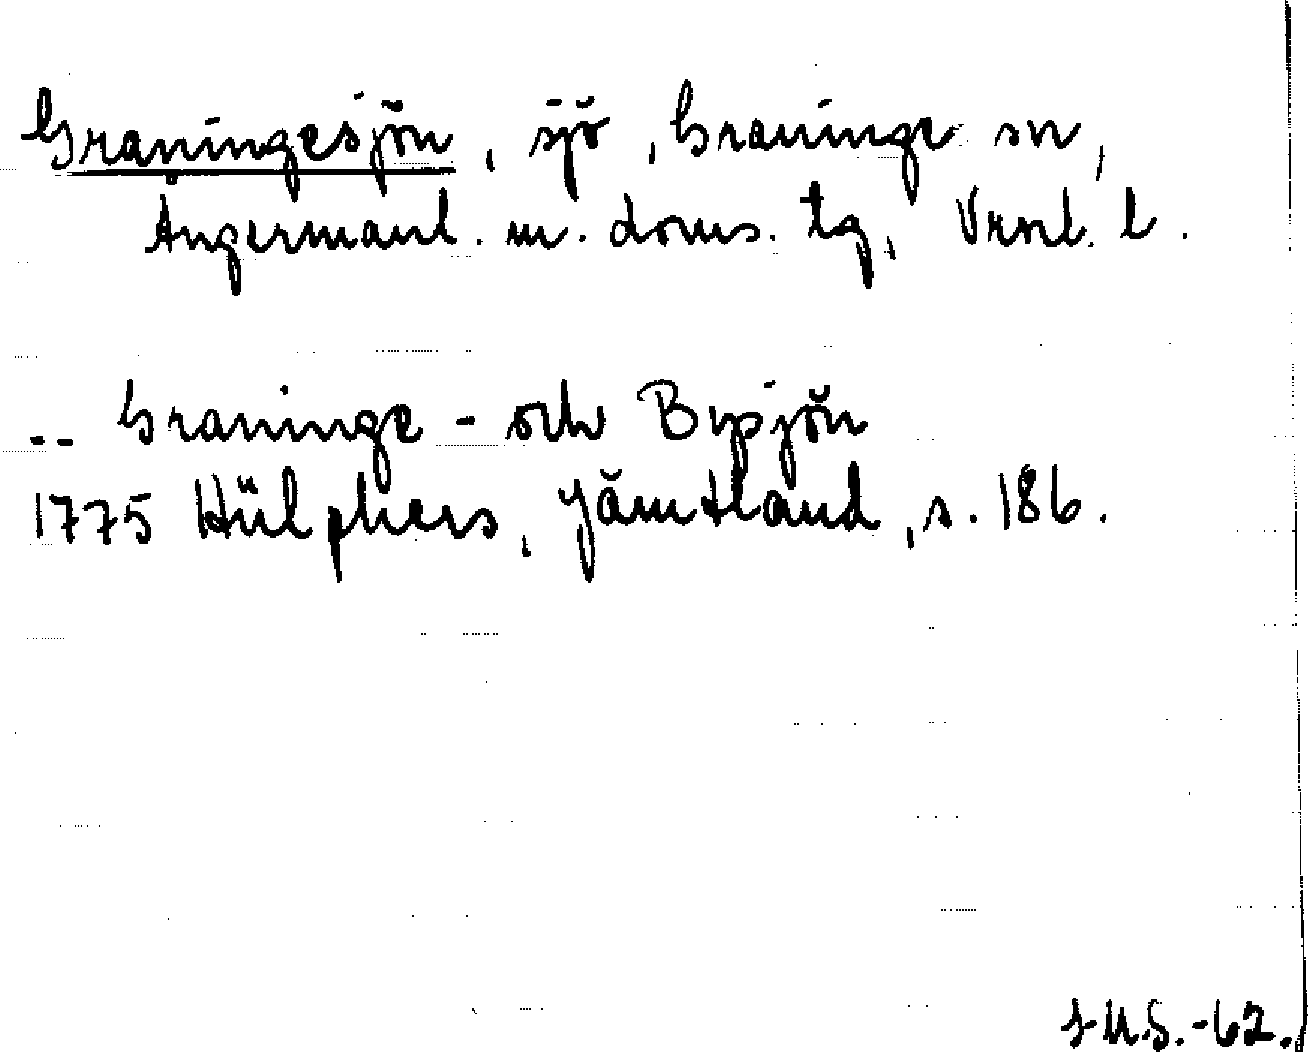 Graningesjön, sjö, Graninge sn,
Ångermanl. m. doms. tg, Vrnl. l.
-- Graninge - och Bysjön
1775 Hülphers, Jämtland, s. 186.
-62.